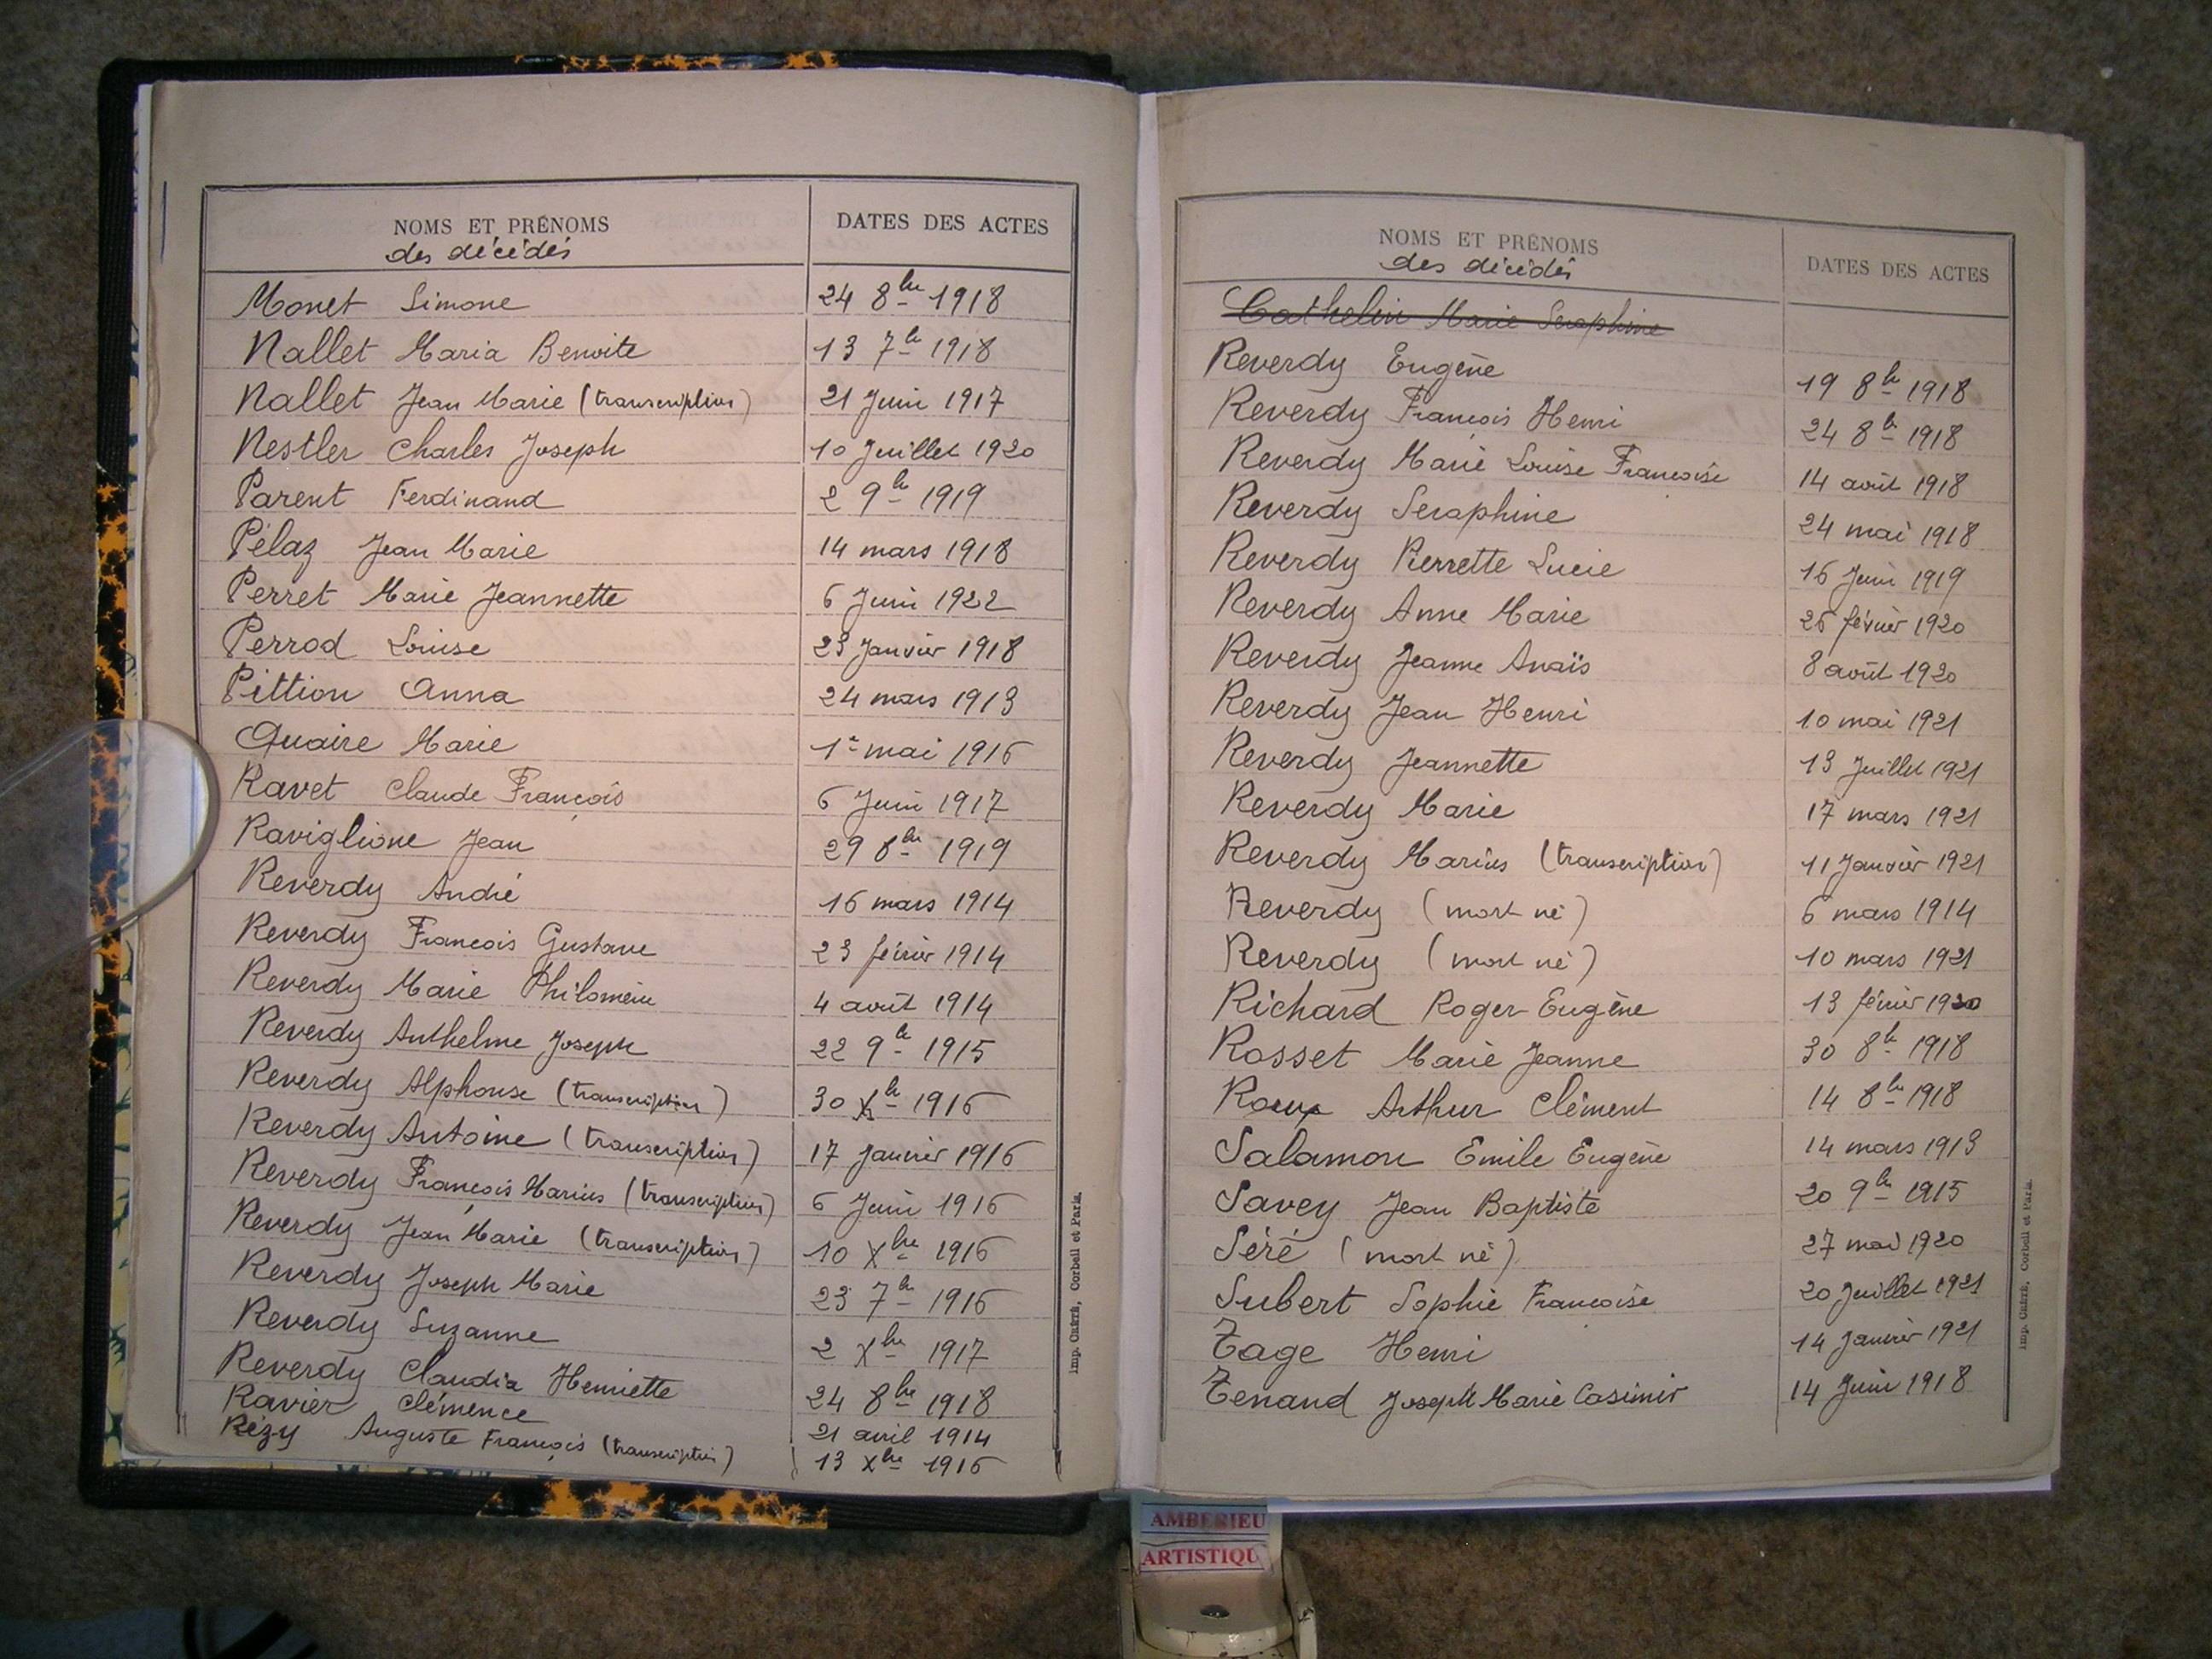 NOMS ET PRÉNOMS DATES DES ACTES
des décédés
Monet Simone 24 8bre 1918
Nallet Maria Benoite 13 7bre 1918
Nallet Jean Marie (transcription) 21 Juin 1917
Nestler Charles Joseph 10 Juillet 1920
Parent Ferdinand 2 9bre 1919
Pélaz Jean Marie 14 mars 1918
Perret Marie Jeannette 6 Juin 1922
Perrod Louise 23 Janvier 1918
Pittion Anna 24 mars 1913
Quaire Marie 1er mai 1916
Ravet Claude François 6 Juin 1917
Raviglione Jean 29 8bre 1919
Reverdy André 16 mars 1914
Reverdy François Gustave 23 février 1914
Reverdy Marie Philomène 4 août 1914
Reverdy Anthelme Joseph 22 9bre 1915
Reverdy Alphonse (transcription) 30 Xbre 1916
Reverdy Antoine (transcription) 17 Janvier 1916
Reverdy François Marius (transcription) 6 Juin 1916
Reverdy Jean Marie (transcription) 10 Xbre 1916
Reverdy Joseph Marie 23 7bre 1916
Reverdy Suzanne 2 Xbre 1917
Reverdy Claudia Henriette 24 8bre 1918
Ravier Clémence 21 avril 1914
Rézy Auguste François (transcription) 13 Xbre 1916
Imp. Corbeil et Paris.
NOMS ET PRÉNOMS DATES DES ACTES
des décédés
Cathelin Marie Seraphine
Reverdy Eugène 19 8bre 1918
Reverdy François Henri 24 8bre 1918
Reverdy Marie Louise Francoise 14 août 1918
Reverdy Seraphine 24 mai 1918
Reverdy Pierrette Lucie 16 Juin 1919
Reverdy Anne Marie 26 février 1920
Reverdy Jeanne Anaïs 8 août 1920
Reverdy Jean Henri 10 mai 1921
Reverdy Jeannette 13 Juillet 1921
Reverdy Marie 17 mars 1921
Reverdy Marius (transcription) 11 Janvier 1921
Reverdy (mort né) 6 mars 1914
Reverdy (mort né) 10 mars 1921
Richard Roger Eugène 13 février 1920
Rosset Marie Jeanne 30 8bre 1918
Roux Arthur Clément 14 8bre 1918
Salamon Emile Eugène 14 mars 1913
Savey Jean Baptiste 20 9bre 1915
Séré (mort né) 27 mai 1920
Subert Sophie Francoise 20 Juillet 1921
Tage Henri 14 Janvier 1921
Tenand Joseph Marie Casimir 14 Juin 1918
Imp. Corbeil et Paris.
AMBERIEU
ARTISTIQU